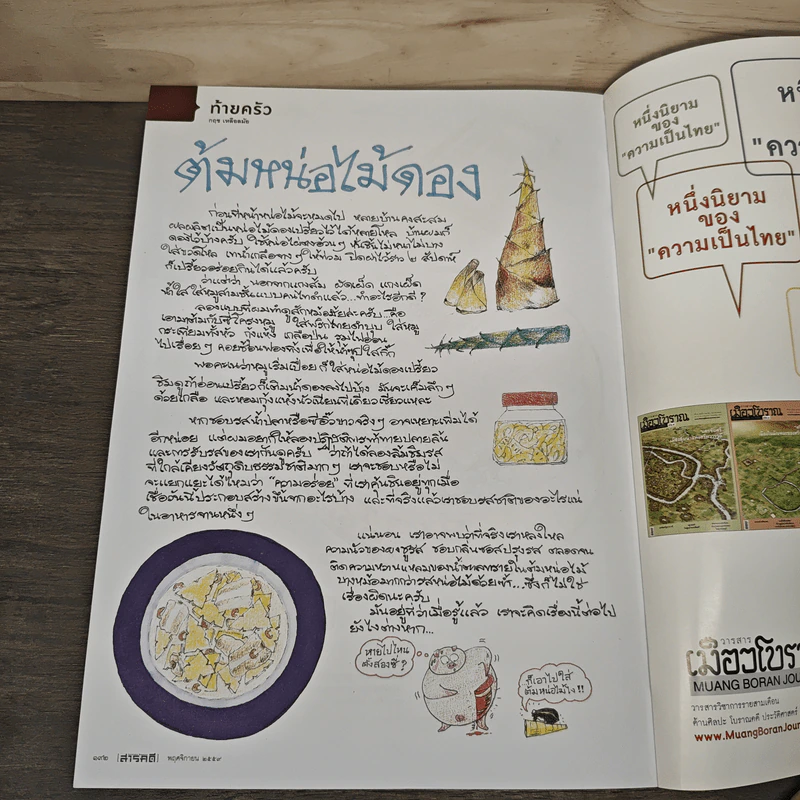 ท้ายครัว
กฤช เหลือลมัย
ต้มหน่อไม้ดอง
ก่อนที่หน้าหน่อไม้จะหมดไป หลายบ้านคงสะสม
ผลผลิตเป็นหน่อไม้ดองเปรี้ยวไว้ได้หลายโหล บ้านผมก็
ดองไว้บ้างครับ ใช้หน่อไผ่ตงอ้วนๆ หั่นชิ้นไม่หนาไม่บาง
ใส่ขวดโหล เทน้ำเกลือจางๆ ให้ท่วม ปิดฝาไว้ราว ๒ สัปดาห์
ก็เปรี้ยวอร่อยกินได้แล้วครับ
ว่าแต่ว่า นอกจากแกงส้ม ผัดเผ็ด แกงเผ็ด
น้ำใส ใส่หมูสามชั้นแบบคนไทดำแล้ว...ทำอะไรอีกดี ?
ลองแบบที่ผมทำดูสักหม้อมั้ยล่ะครับ คือ
เอามาต้มกับซี่โครงหมู ใส่พริกไทยดำบุบ ใส่หมู
กระเทียมทั้งหัว กุ้งแห้ง เกลือป่น รุมไฟอ่อน
ไปเรื่อยๆ คอยช้อนฟองทิ้งเพื่อให้น้ำซุปใสกิ๊ก
พอคะเนว่าหมูเริ่มเปื่อย ก็ใส่หน่อไม้ดองเปรี้ยว
ชิมดูถ้าอ่อนเปรี้ยวก็เติมน้ำดองลงไปบ้าง มันจะเค็มลึกๆ
ด้วยเกลือ และหอมกุ้งแห้งหัวเนียนทีเดียวเชียวแหละ
หากชอบรสน้ำปลาหรือซีอิ๊วขาวจริงๆ อาจเหยาะเพิ่มได้
อีกหน่อย แต่ผมอยากให้ลองปฏิบัติการท้าทายปลายลิ้น
และการรับรสของเรากันดูครับ ว่าถ้าได้ลองลิ้มชิมรส
ที่ใกล้เคียงวัตถุดิบธรรมชาติมากๆ เราจะชอบหรือไม่
จะแยกแยะได้ไหมว่า "ความอร่อย" ที่เราคุ้นชินอยู่ทุกเมื่อ
เชื่อวันนี้ประกอบสร้างขึ้นจากอะไรบ้าง และที่จริงแล้วเราชอบรสชาติของอะไรแน่
ในอาหารจานหนึ่งๆ
แน่นอน เราอาจพบว่าที่จริงเราหลงใหล
ความนัวของผงชูรส ชอบกลิ่นซอสปรุงรส ตลอดจน
ติดความหวานแหลมของน้ำตาลทรายในต้มหน่อไม้
บางหม้อมากกว่ารสหน่อไม้ด้วยซ้ำ...ซึ่งก็ไม่ใช่
เรื่องผิดนะครับ
มันอยู่ที่ว่าเมื่อรู้แล้ว เราจะคิดเรื่องนี้ต่อไป
ยังไงต่างหาก...
หายไปไหน
ตั้งสองซี่ ?
ก็เอาไปใส่
ต้มหน่อไม้ไง !!
๑๓๒ [สารคดี] พฤศจิกายน ๒๕๕๙
หนึ่งนิยาม
ของ
"ความเป็นไทย"
หนึ่งนิยาม
ของ
"ความเป็นไทย"
เมืองโบราณ
เมืองโบราณ
วารสาร
เมืองโบราณ
MUANG BORAN JOU
วารสารวิชาการรายสามเดือน
ด้านศิลปะ โบราณคดี ประวัติศาสตร์
www.MuangBoranJour